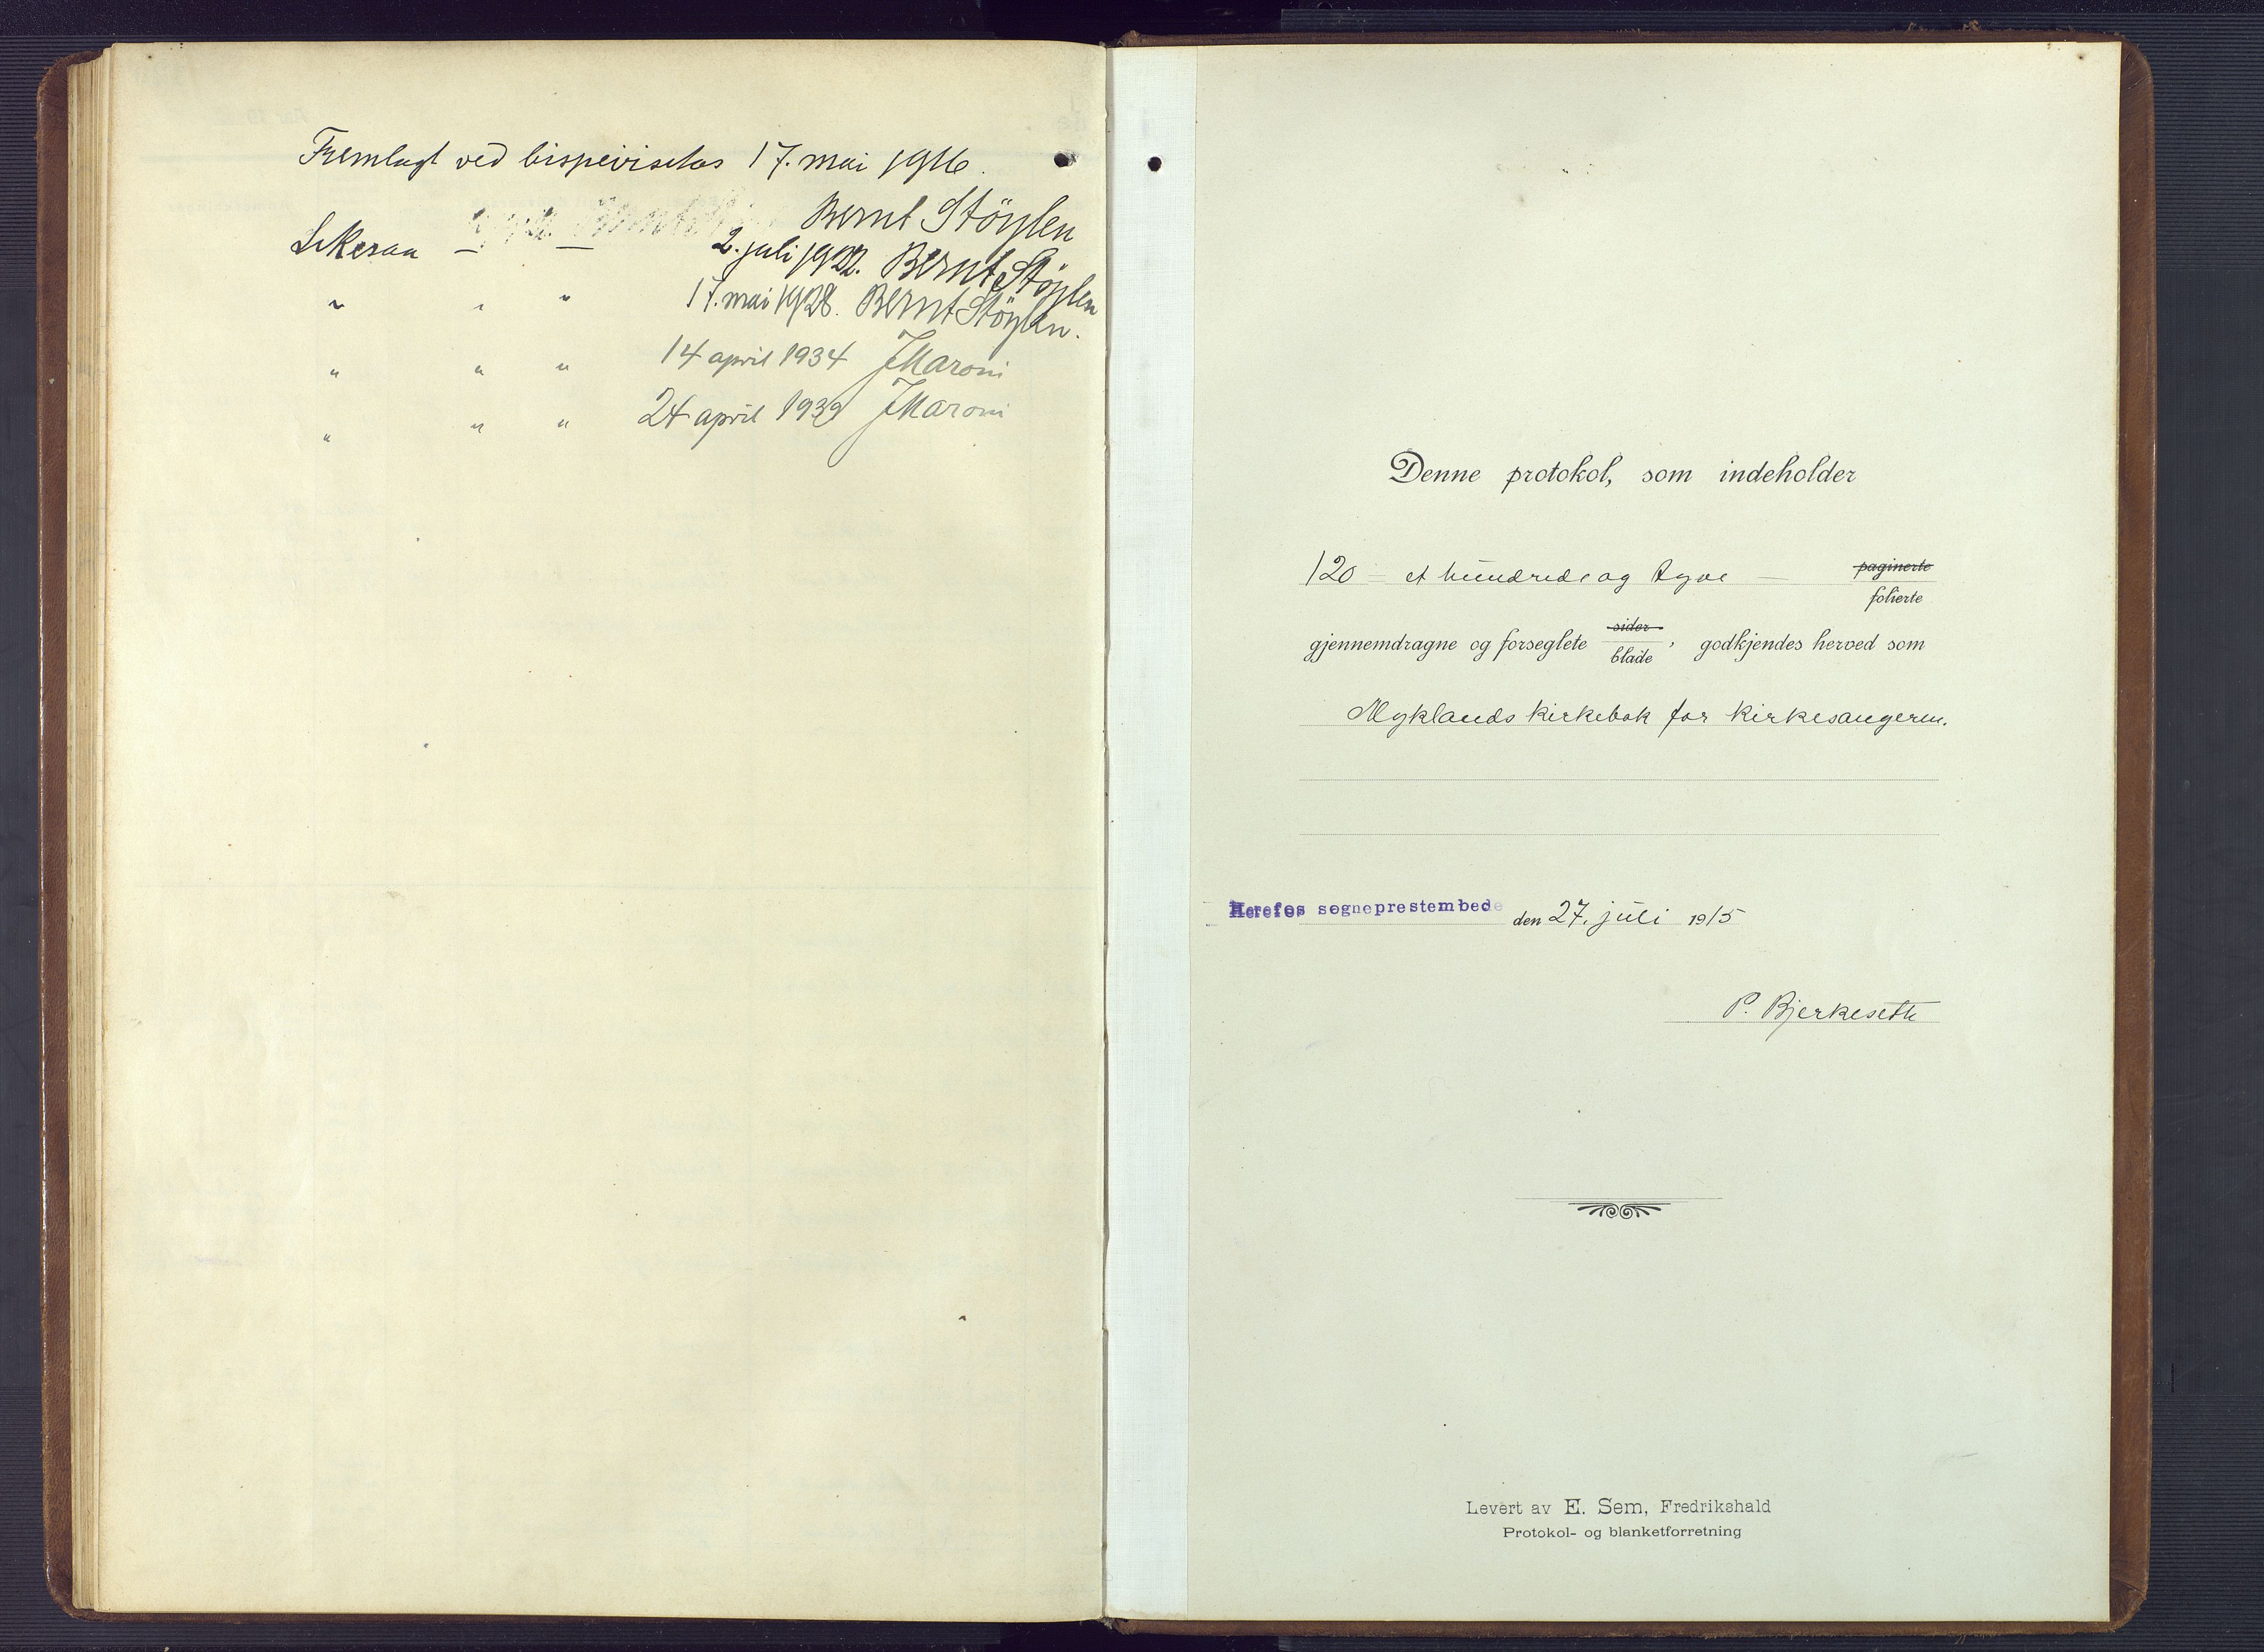 Fremlagt ved bispevisitas 17. mai 1916.
Bernt Störylen
Likesaa — — 2. juli 1922. Bernt Störylen
" " " 17. mai 1928. Bernt Störylen.
" " " 14 april 1934 JMaroni
" " " 24 april 1939 JMaroni
Denne protokol, som indeholder
120 = et hundrede og tyve — paginerte
folierte
gjennemdragne og forseglete sider
blade, godkjendes herved som
Myklands kirkebok for kirkesangeren.
Herefos sogneprestembede den 27. juli 1915
P. Bjerkeseth
Levert av E. Sem, Fredrikshald
Protokol- og blanketforretning